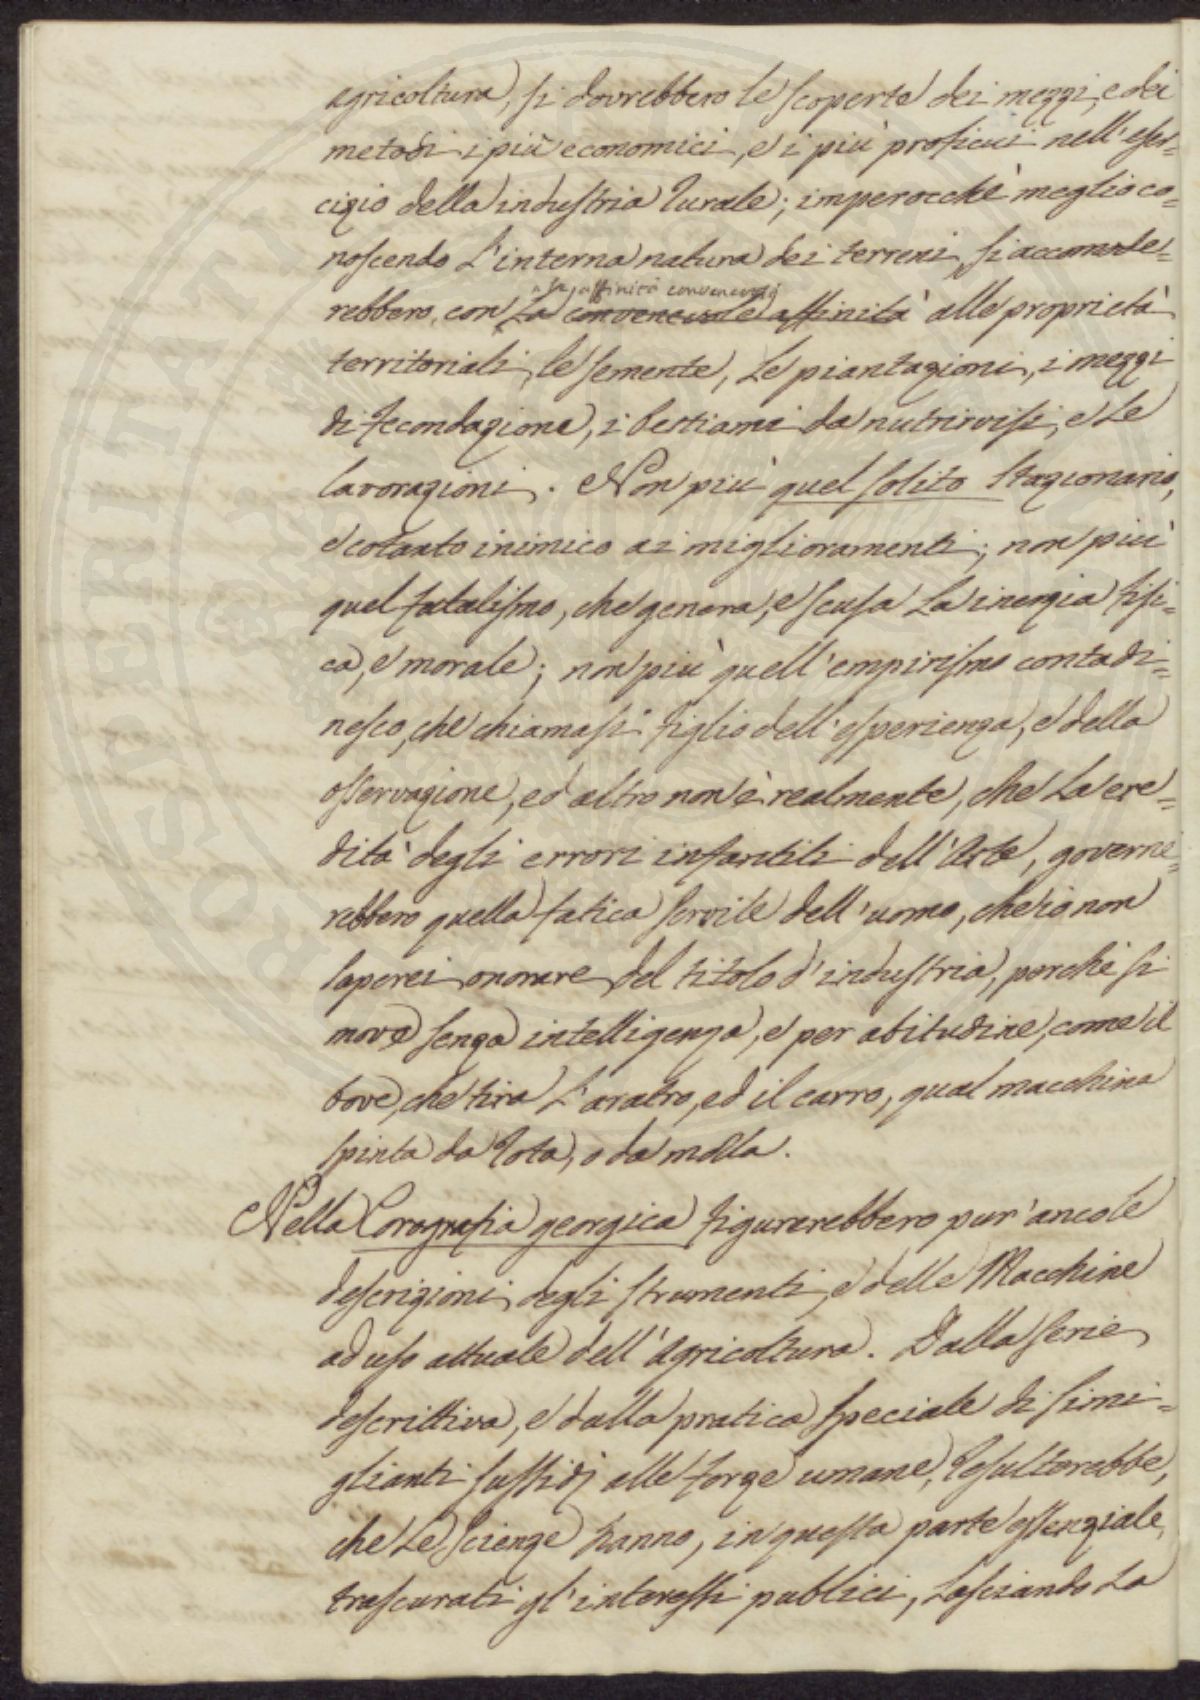 agricoltura, si dovrebbero le scoperte dei mezzi, e dei
metodi i più economici, e i più proficui nell'eser=
cizio della industria rurale; imperocchè meglio co=
noscendo l'interna natura dei terreni, si accomode=
rebbero, con
la affinità convenevole
la convenevole affinità alle proprietà
territoriali, le semente, le piantagioni, i mezzi
di fecondazione, i bestiami da nutrirvisi, e le
lavorazioni. Non più quel solito stazionario,
e cotanto inimico ai miglioramenti; non più
quel fatalismo, che genera, e scusa la inerzia fisi=
ca, e morale; non più quell'empirismo contadi=
nesco, che chiamasi figlio dell'esperienza, e della
osservazione, ed altro non è realmente, che la ere=
dità degli errori infantili dell'Arte, governe=
rebbero quella fatica servile dell'uomo, che io non
saperei onorare del titolo d'industria, perchè si
move senza intelligenza, e per abitudine, come il
bove, che tira l'aratro, ed il carro, qual macchina
spinta da rota, o da molla.
Nella Corografia georgica figurerebbero pur'anco le
descrizioni degli strumenti, e delle Macchine
ad uso attuale dell'Agricoltura. Dalla serie
descrittiva, e dalla pratica speciale di simi=
glianti sussidj alle forze umane, resulterebbe,
che le Scienze hanno, in questa parte essenziale,
trascurati gl'interessi publici, lasciando la
PROSPERITATI